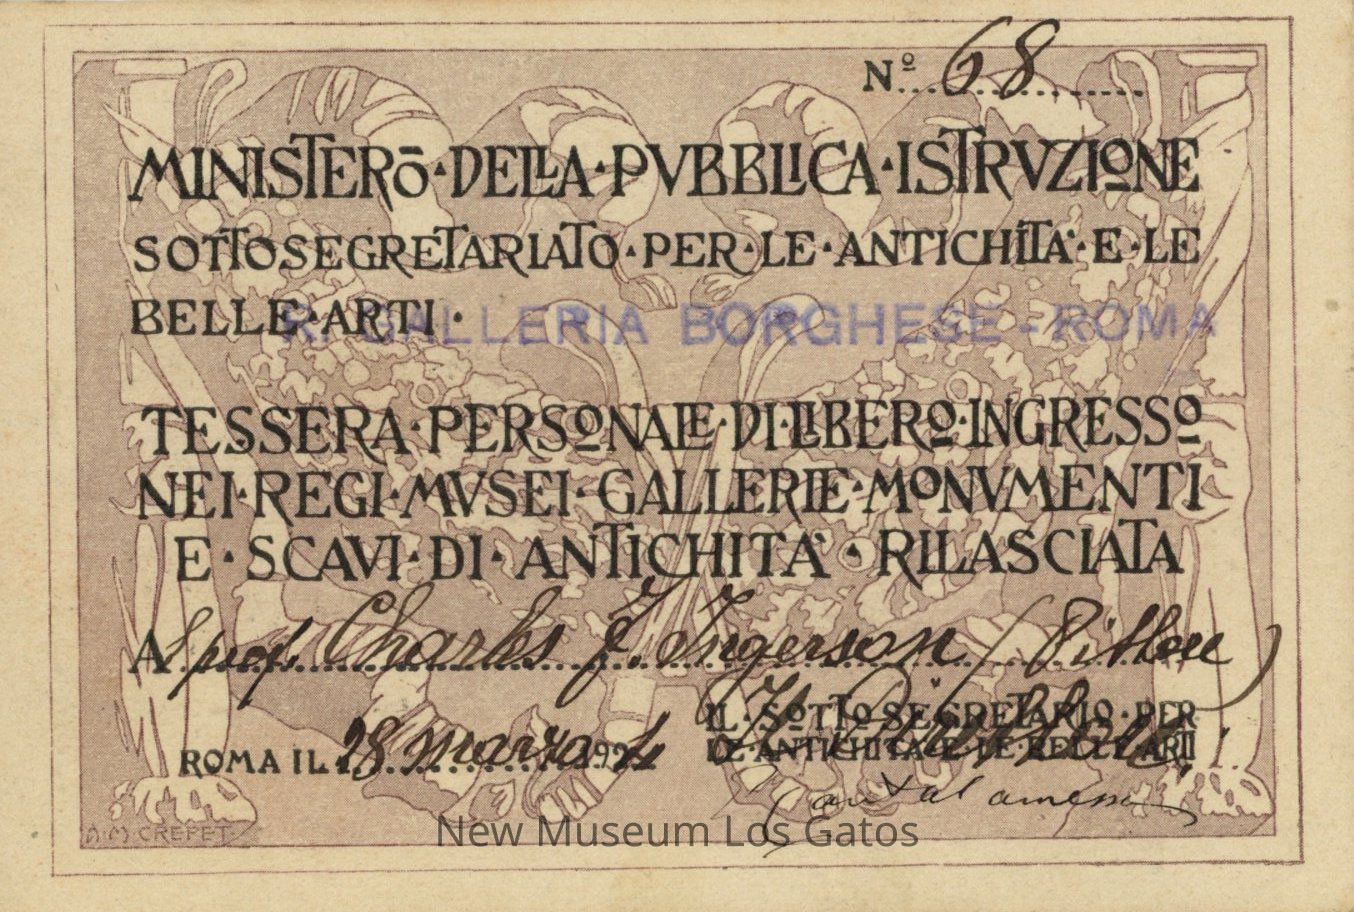 Nº 68
MINISTERO·DELLA·PVBBLICA·ISTRVZIONE
SOTTOSEGRETARIATO·PER·LE·ANTICHITA·E·LE
BELLE·ARTI·
R. GALLERIA BORGHESE - ROMA
TESSERA·PERSONALE·DI·LIBERO·INGRESSO
NEI·REGI·MVSEI·GALLERIE·MONVMENTI
E·SCAVI·DI·ANTICHITA'·RILASCIATA
A prof. Charles J. Ingerson
IL·SOTTOSEGRETARIO·PER
LE·ANTICHITA·E·LE·BELLE·ARTI
ROMA IL 28 marzo 1921
Il Direttore
A·M·CREPET·
New Museum Los Gatos